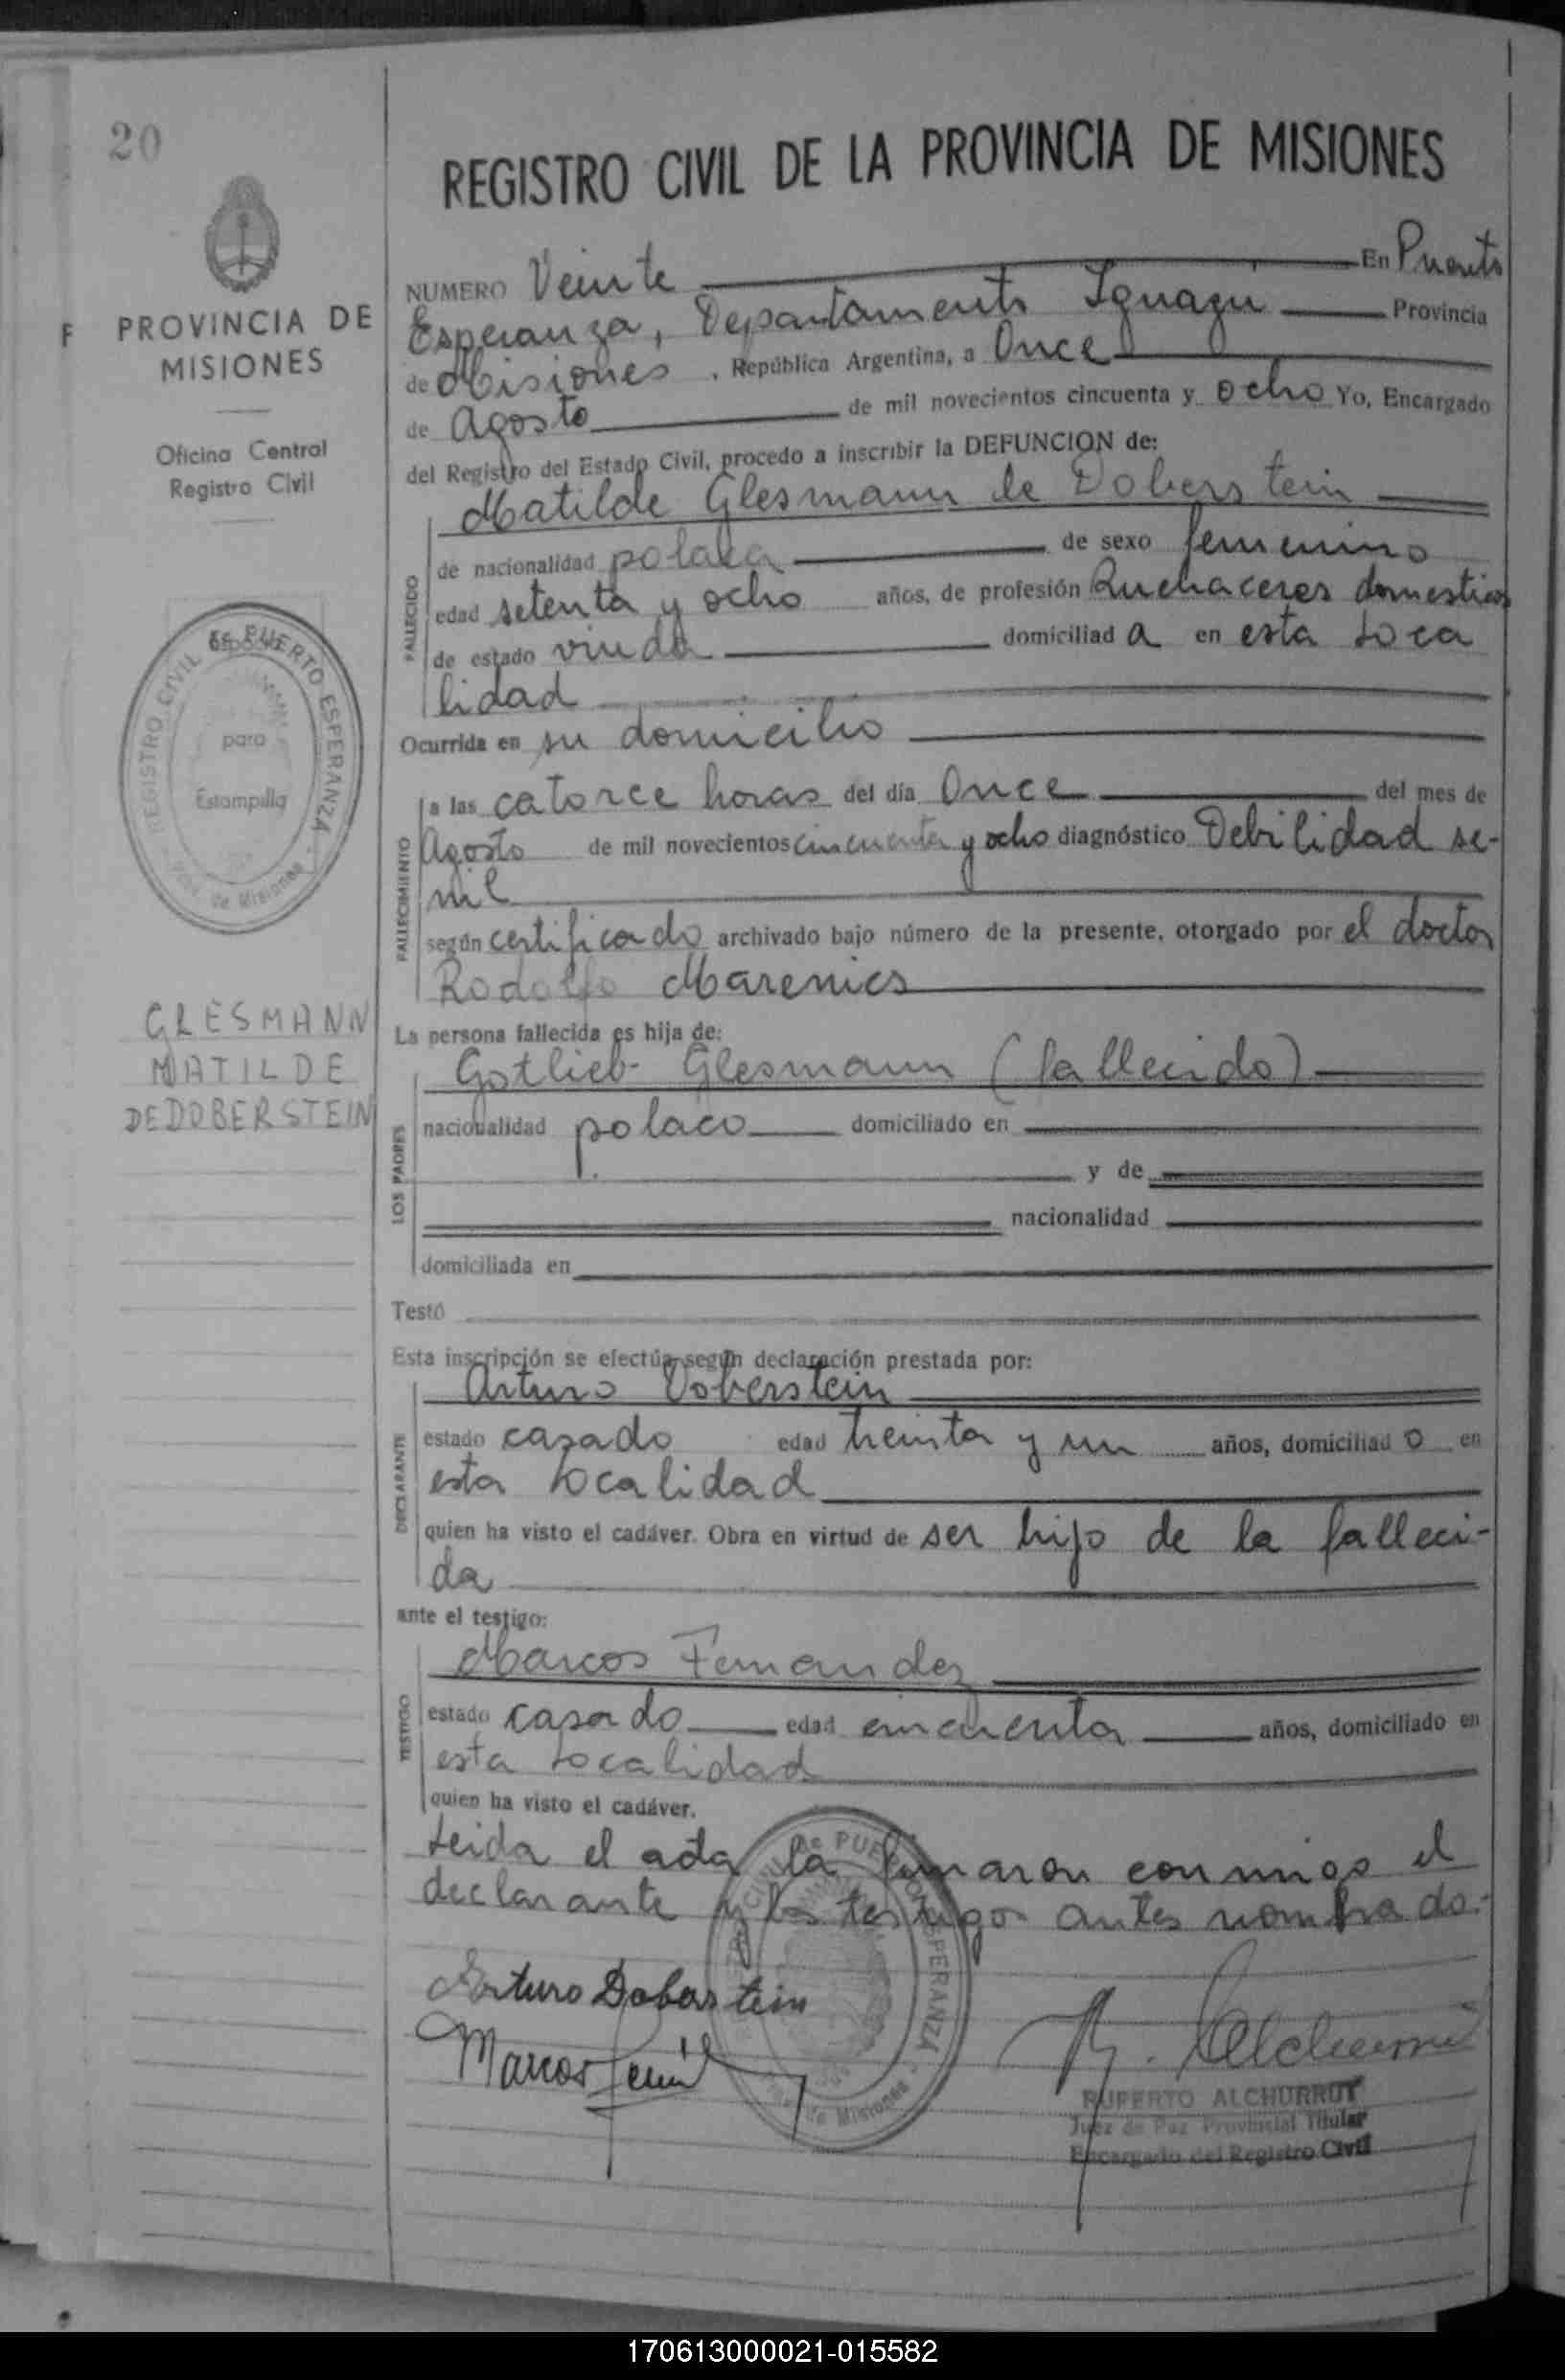 20
REGISTRO CIVIL DE LA PROVINCIA DE MISIONES
F PROVINCIA DE
MISIONES
Oficina Central
Registro Civil
REGISTRO CIVIL de PUERTO ESPERANZA
para
Estampilla
de Misiones
GLESMANN
MATILDE
DE DOBERSTEIN
NUMERO Veinte En Puerto
Esperanza, Departamento Iguazú Provincia
de Misiones , República Argentina, a Once
de Agosto de mil novecientos cincuenta y ocho Yo, Encargado
del Registro del Estado Civil, procedo a inscribir la DEFUNCION de:
Matilde Glesmann de Doberstein
FALLECIDO
de nacionalidad polaca de sexo femenino
edad setenta y ocho años, de profesión Quehaceres domesticos
de estado viuda domiciliad a en esta loca
lidad
Ocurrida en su domicilio
FALLECIMIENTO
a las catorce horas del día Once del mes de
Agosto de mil novecientos cincuenta y ocho diagnóstico Debilidad se-
nil
según certificado archivado bajo número de la presente, otorgado por el doctor
Rodolfo Marenics
La persona fallecida es hija de:
LOS PADRES
Gotlieb Glesmann (fallecido)
nacionalidad polaco domiciliado en
y de
nacionalidad
domiciliada en
Testó
Esta inscripción se efectúa según declaración prestada por:
DECLARANTE
Arturo Doberstein
estado casado edad treinta y un años, domiciliad o en
esta localidad
quien ha visto el cadáver. Obra en virtud de ser hijo de la falleci-
da
ante el testigo:
TESTIGO
Marcos Fernandez
estado casado edad cincuenta años, domiciliado en
esta localidad
quien ha visto el cadáver.
Leida el acta la firmaron conmigo el
declarante y los testigos antes nombrado.-
Arturo Doberstein
Marcos
RUPERTO ALCHURRUT
Juez de Paz Provincial Titular
Encargado del Registro Civil
170613000021-015582